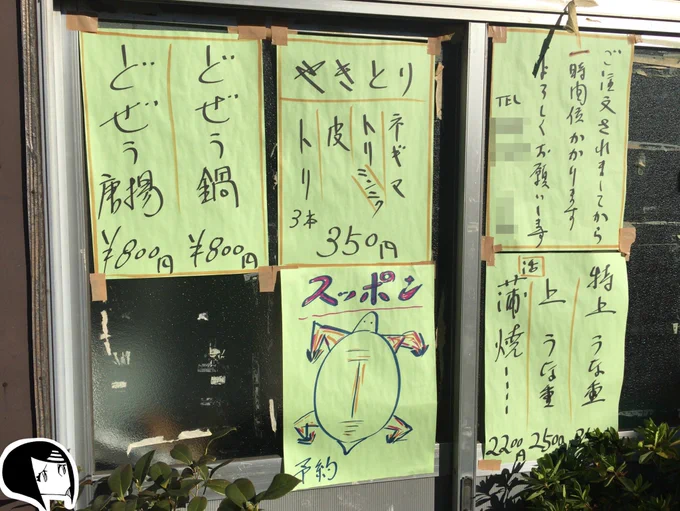 どぜう鍋
¥800円
どぜう唐揚
¥800円
やきとり
ネギマ
トリ
皮
トリ
3本
350円
スッポン
予約
ご注文されましてから
一時間位かかります
よろしくお願いします
TEL
特上うな重
上うな重
2500
蒲焼....
2200円